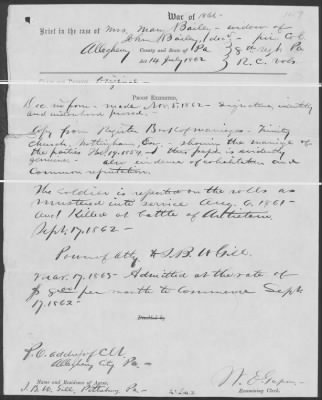 War of 1861
Brief in the case of Mrs Mary Bailey - widow of
John Bailey, dec'd - pvt Co.
Allegheny County and State of Pa 8th regt Pa
Act 14 July 1862 R. C. vols
Original
PROOF EXHIBITED,
Dec in form - made Nov. 5, 1862 - Signature, identity
and
Copy from Register Book of marriages. Trinity
Church, Nottingham, Eng. showing the marriage of
the parties & this paper is evidently
genuine. - also evidence of cohabitation and
common reputation.
The Soldier is reported on the rolls as
mustered into service Aug. 6, 1861 -
and Killed at battle of Antietam
Sept. 17, 1862 -
Power of atty. J. B. W. Gill.
Mar. 17, 1863 - Admitted at the rate of
$8 per month to commence Sept
17, 1862 -
P. O. address of Clt
Allegheny City Pa -
Name and Residence of Agent,
J. B. W. Gill, Pittsburg, Pa -
Examining Clerk.